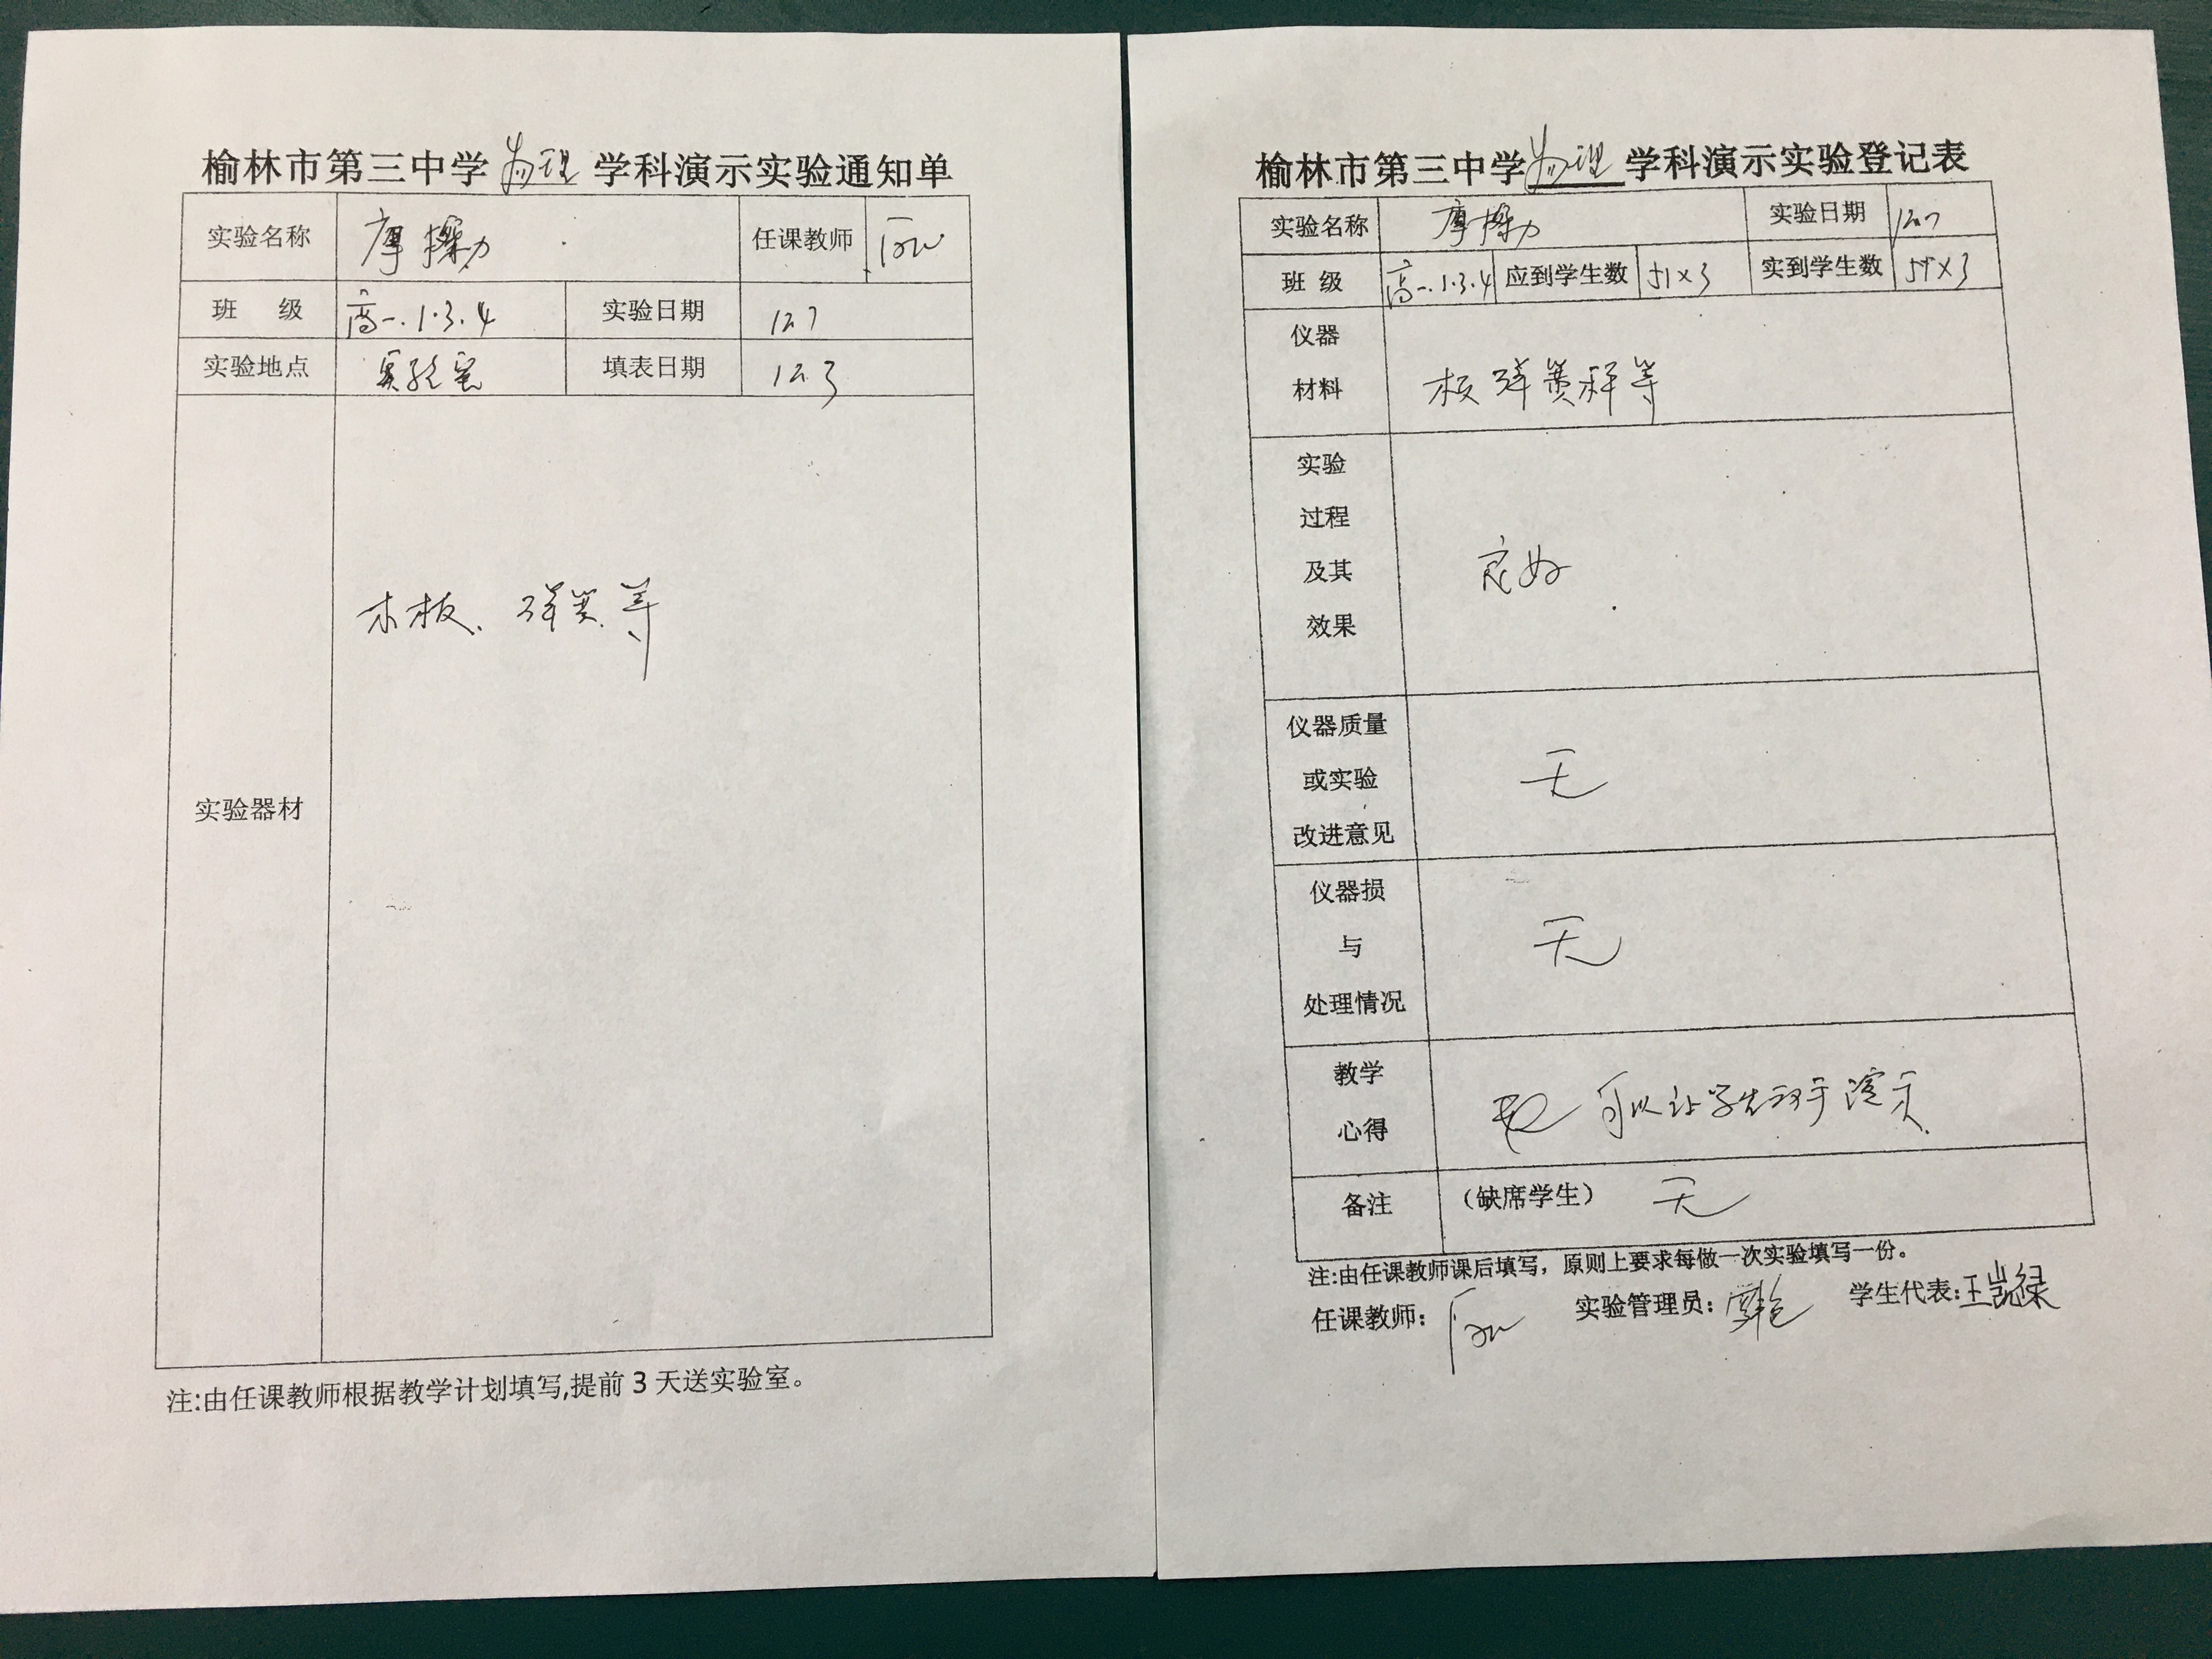 榆林市第三中学物理学科演示实验通知单
实验名称 摩擦力 任课教师
班 级 高一.1.3.4 实验日期 12.7
实验地点 实验室 填表日期 12.3
实验器材 木板、弹簧等
注:由任课教师根据教学计划填写,提前3天送实验室。
榆林市第三中学物理学科演示实验登记表
实验名称 摩擦力 实验日期 12.7
班 级 高一.1.3.4 应到学生数 51×3 实到学生数
仪器
材料
板 弹簧秤等
实验
过程
及其
效果
良好
仪器质量
或实验
改进意见
无
仪器损
与
处理情况
无
教学
心得
可以让学生动手演示
备注 (缺席学生) 无
注:由任课教师课后填写，原则上要求每做一次实验填写一份。
任课教师: 实验管理员: 学生代表:王凯绿